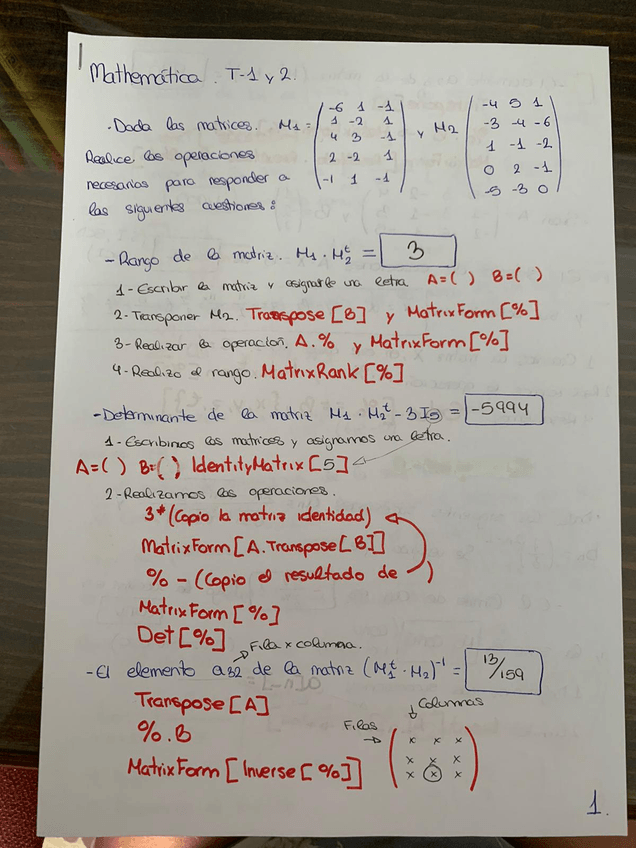 Mathemática. T-1 y 2.
·Dada las matrices. M1 = ( -6 1 -1 ) y M2 ( -4 5 1 )
( 1 -2 1 ) ( -3 -4 -6 )
( 4 3 -1 ) ( 1 -1 -2 )
( 2 -2 1 ) ( 0 2 -1 )
( -1 1 -1 ) ( -5 -3 0 )
Realice las operaciones
necesarias para responder a
las siguientes cuestiones:
- Rango de la matriz. M1 · M2^t = 3
1 - Escribir la matriz y asignarle una letra A=( ) B=( )
2 - Transponer M2. Transpose [B] y MatrixForm [%]
3 - Realizar la operación. A.% y MatrixForm [%]
4 - Realizo el rango. MatrixRank [%]
- Determinante de la matriz M1 · M2^t - 3I5 = -5994
1 - Escribimos las matrices y asignamos una letra.
A=( ) B=( ) IdentityMatrix [5]
2 - Realizamos las operaciones.
3*(Copio la matriz identidad)
MatrixForm [A.Transpose[B]]
% - (Copio el resultado de )
MatrixForm [%]
Det [%]
Fila x columna.
- El elemento a32 de la matriz (M1^t · M2)^-1 = 13/159
Transpose [A]
%.B
MatrixForm [Inverse [%]]
Columnas
Filas
x x x
x x x
x x x
1.